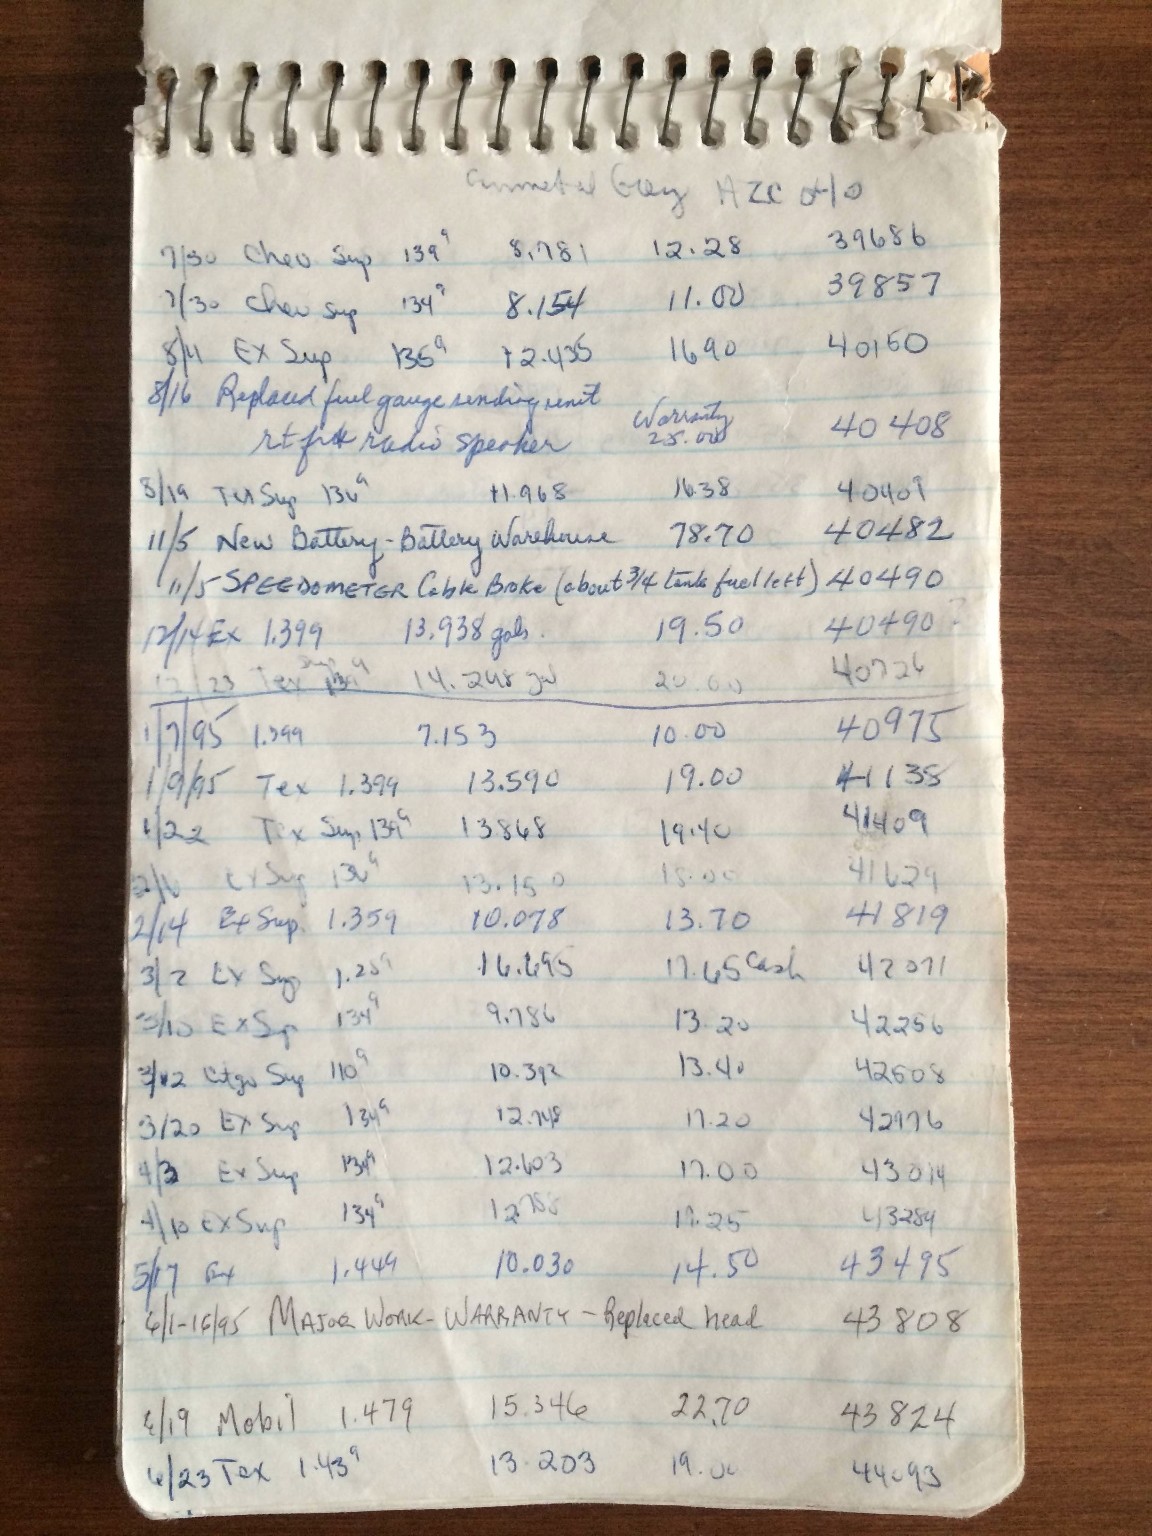 Gunmetal Grey
7/30 Chev Sup 139⁹ 8.781 12.28 39686
7/30 Chev Sup 134⁹ 8.154 11.00 39857
8/11 Ex Sup 135⁹ 12.435 16.90 40150
8/16 Replaced fuel gauge sending unit
rt frt radio speaker Warranty 25.00 40408
8/19 Tex Sup 136⁹ 11.968 16.38 40409
11/5 New Battery - Battery Warehouse 78.70 40482
11/5 SPEEDOMETER Cable Broke (about 3/4 tank fuel left) 40490
12/14 Ex 1.399 13.938 gals. 19.50 40490 ?
12/23 Tex Sup 139⁹ 14.298 gal 20.00 40726
1/7/95 1.399 7.153 10.00 40975
1/9/95 Tex 1.399 13.590 19.00 41138
1/22 Tex Sup 139⁹ 13.868 19.40 41409
2/6 Ex Sup 136⁹ 13.150 18.00 41629
2/14 Ex Sup. 1.359 10.078 13.70 41819
3/2 Ex Sup 16.695 17.65 Cash 42071
3/10 Ex Sup 134⁹ 9.786 13.20 42256
Citgo Sup 10.392 13.40 42608
3/20 Ex Sup 134⁹ 12.748 17.20
4/3 Ex Sup 134⁹ 12.603 17.00 43014
4/10 Ex Sup 134⁹ 17.25 43284
5/17 Ex 1.449 10.030 14.50 43495
6/1-16/95 MAJOR WORK - WARRANTY - Replaced head 43808
6/19 Mobil 1.479 15.346 22.70 43824
6/23 Tex 1.43⁹ 13.203 19.00 44093